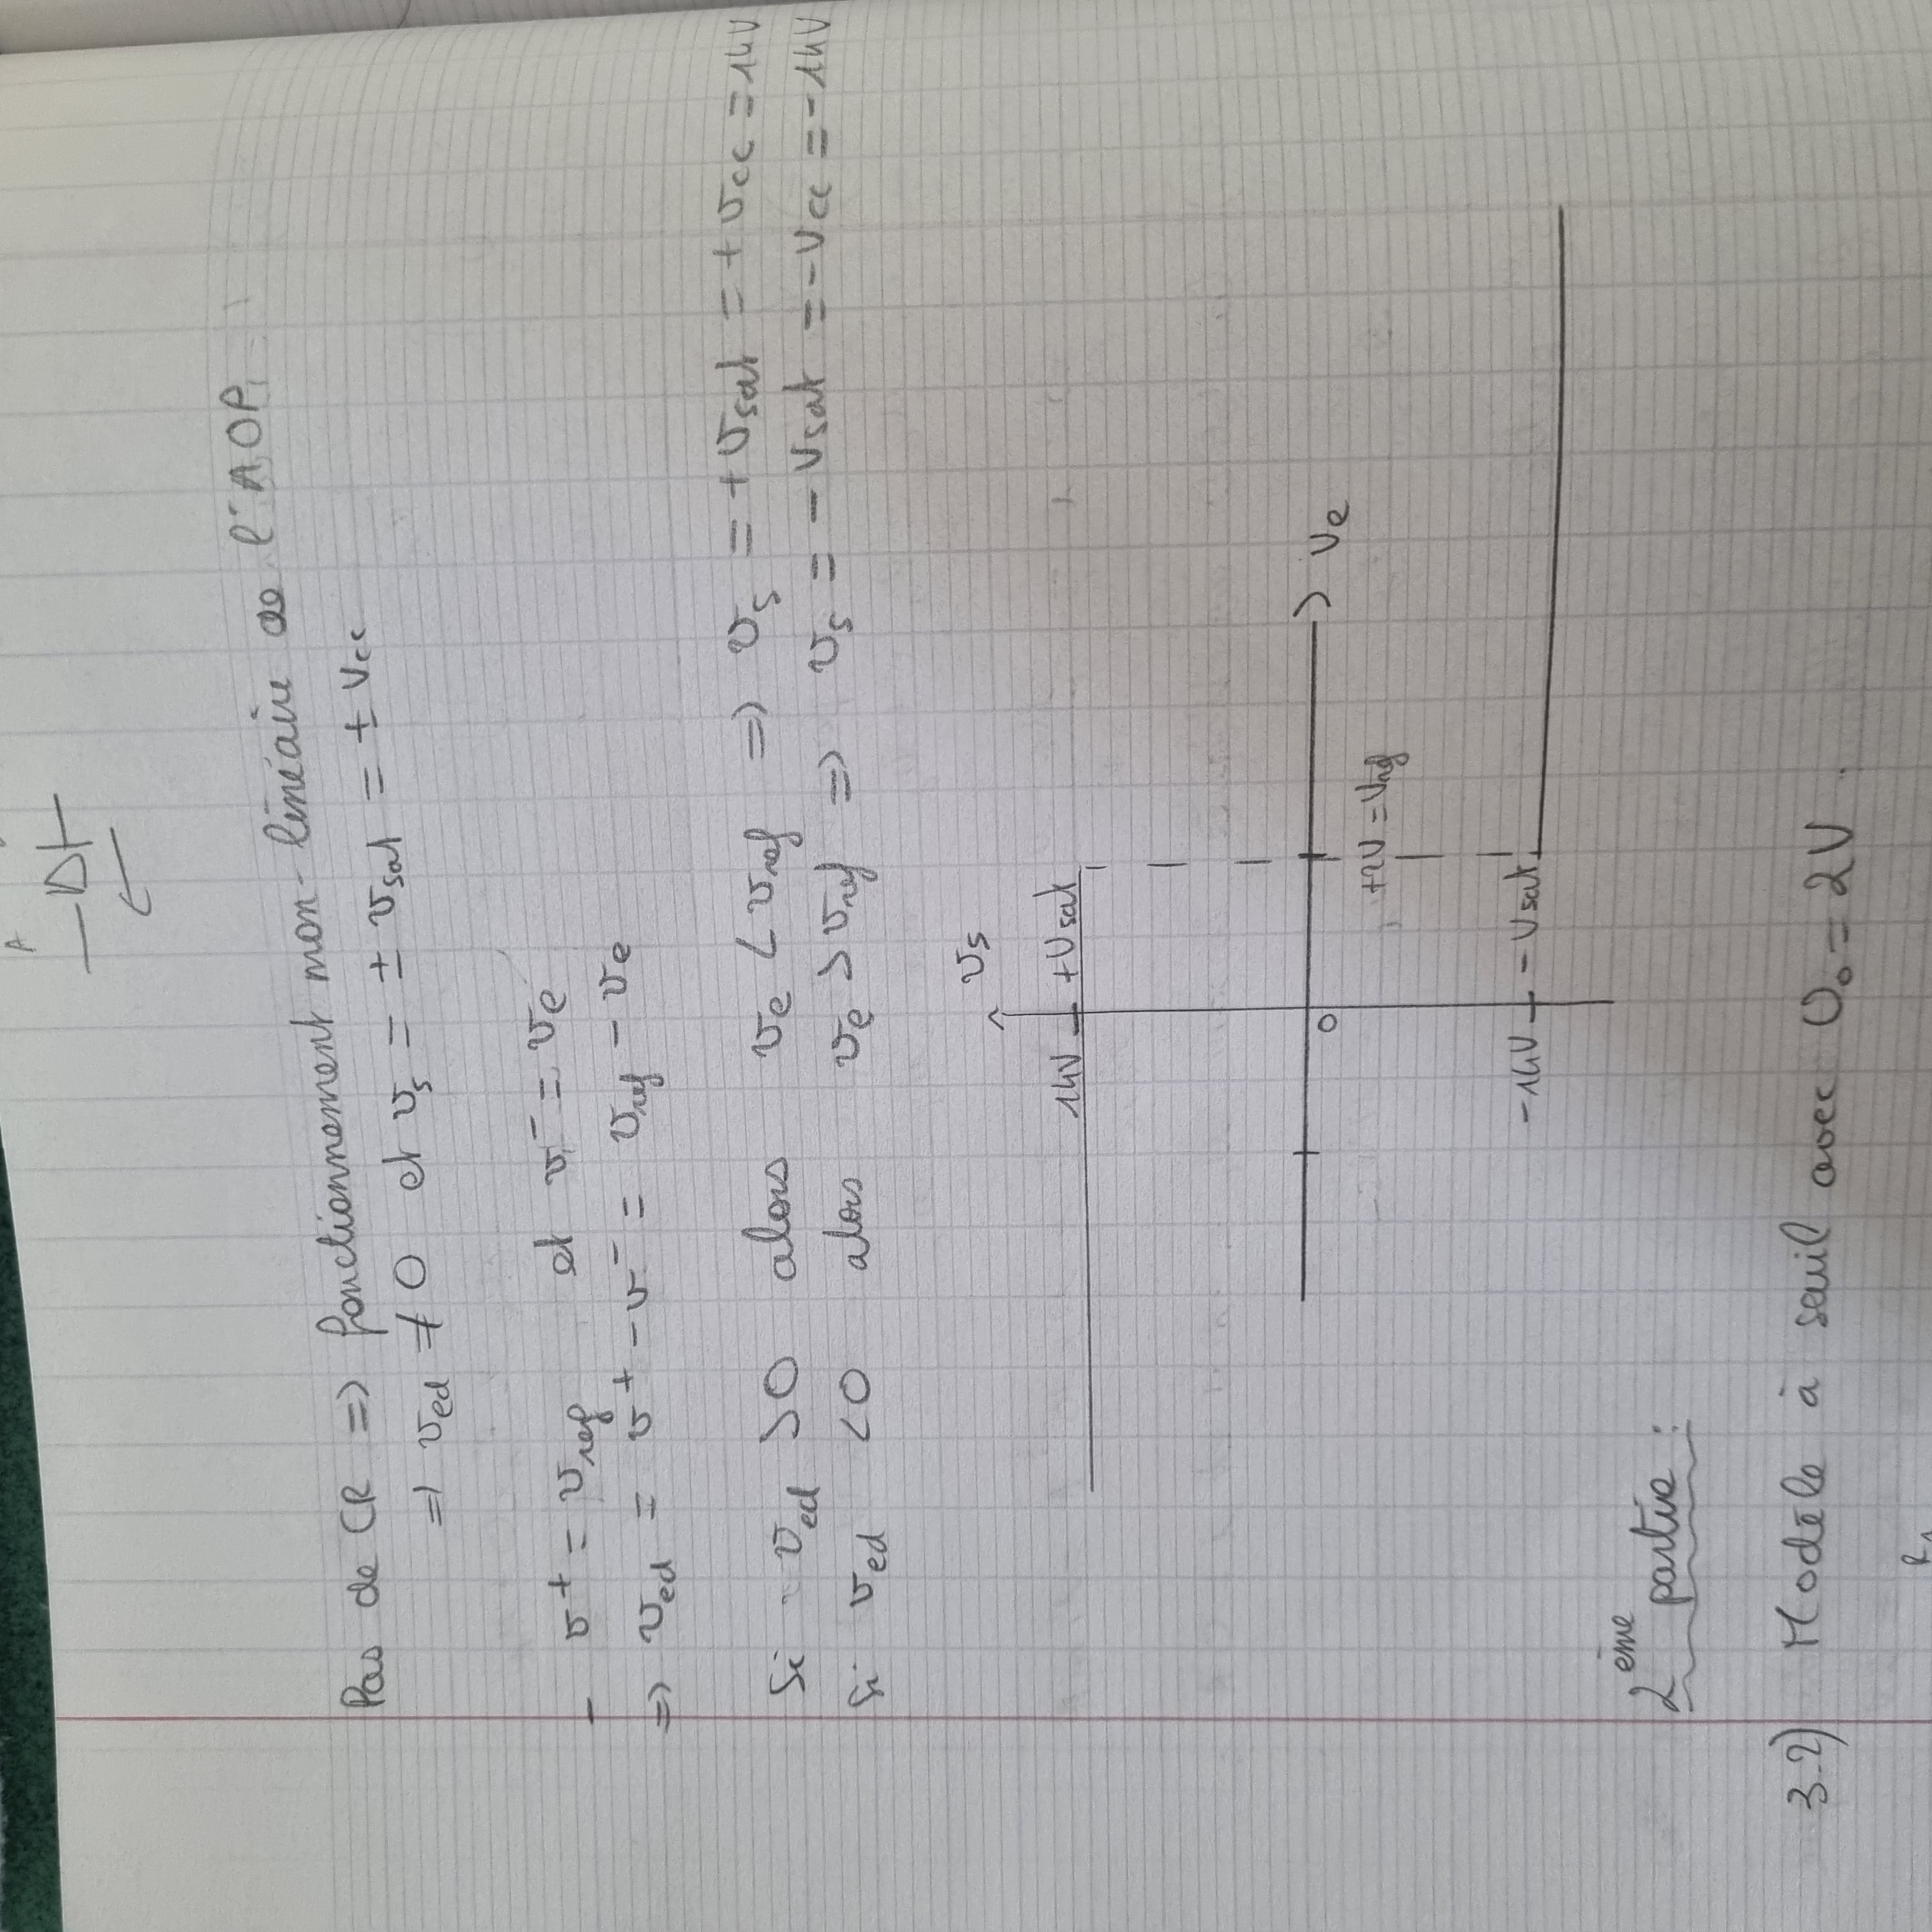 Pas de CR => fonctionnement non-linéaire de l'AOP
=> ved ≠ 0 et vs = ± vsat = ± Vcc
- v+ = vref et v- = ve
=> ved = v+ - v- = vref - ve
Si ved > 0 alors ve < vref => vs = + vsat = + vcc = 14V
Si ved < 0 alors ve > vref => vs = - vsat = - Vcc = - 14V
vs
14V + Vsat
ve
0
+2V = Vref
-14V - Vsat
2ème partie :
3-2) Modèle à seuil avec U0 = 2V.